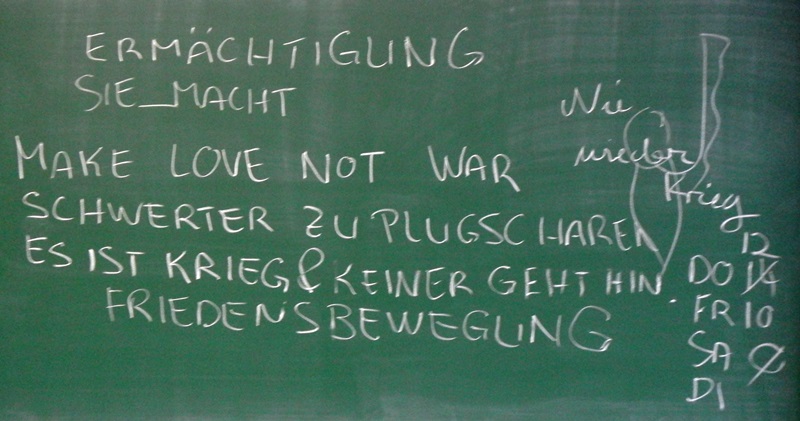 ERMÄCHTIGUNG
SIE_MACHT
MAKE LOVE NOT WAR
SCHWERTER ZU PLUGSCHAREN
ES IST KRIEG & KEINER GEHT HIN.
FRIEDENSBEWEGUNG
Nie
wieder
Krieg
12
DO 14
FR 10
SA
DI